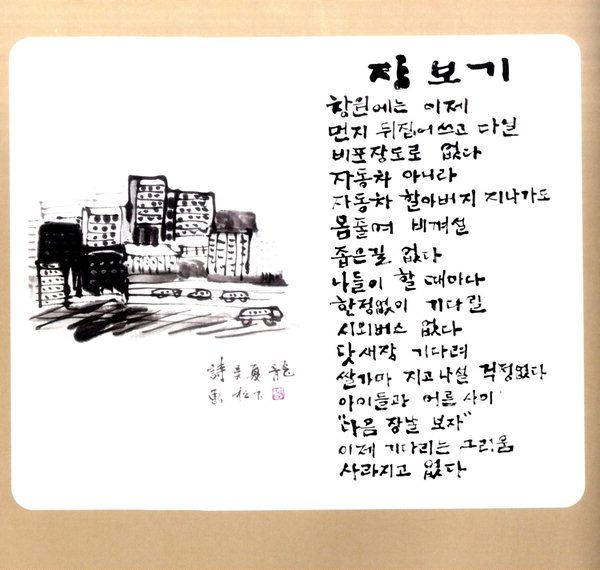 장보기
창원에는 이제
먼지 뒤집어쓰고 다닐
비포장도로 없다
자동차 아니라
자동차 할아버지 지나가도
몸풀며 비껴설
좁은길 없다
나들이 할 때마다
한정없이 기다릴
시외버스 없다
닷새장 기다려
쌀가마 지고나설 걱정없다
아이들과 어른 사이
"다음 장날 보자"
이제 기다리는 그리움
사라지고 없다
詩 吳夏龍
画 松下